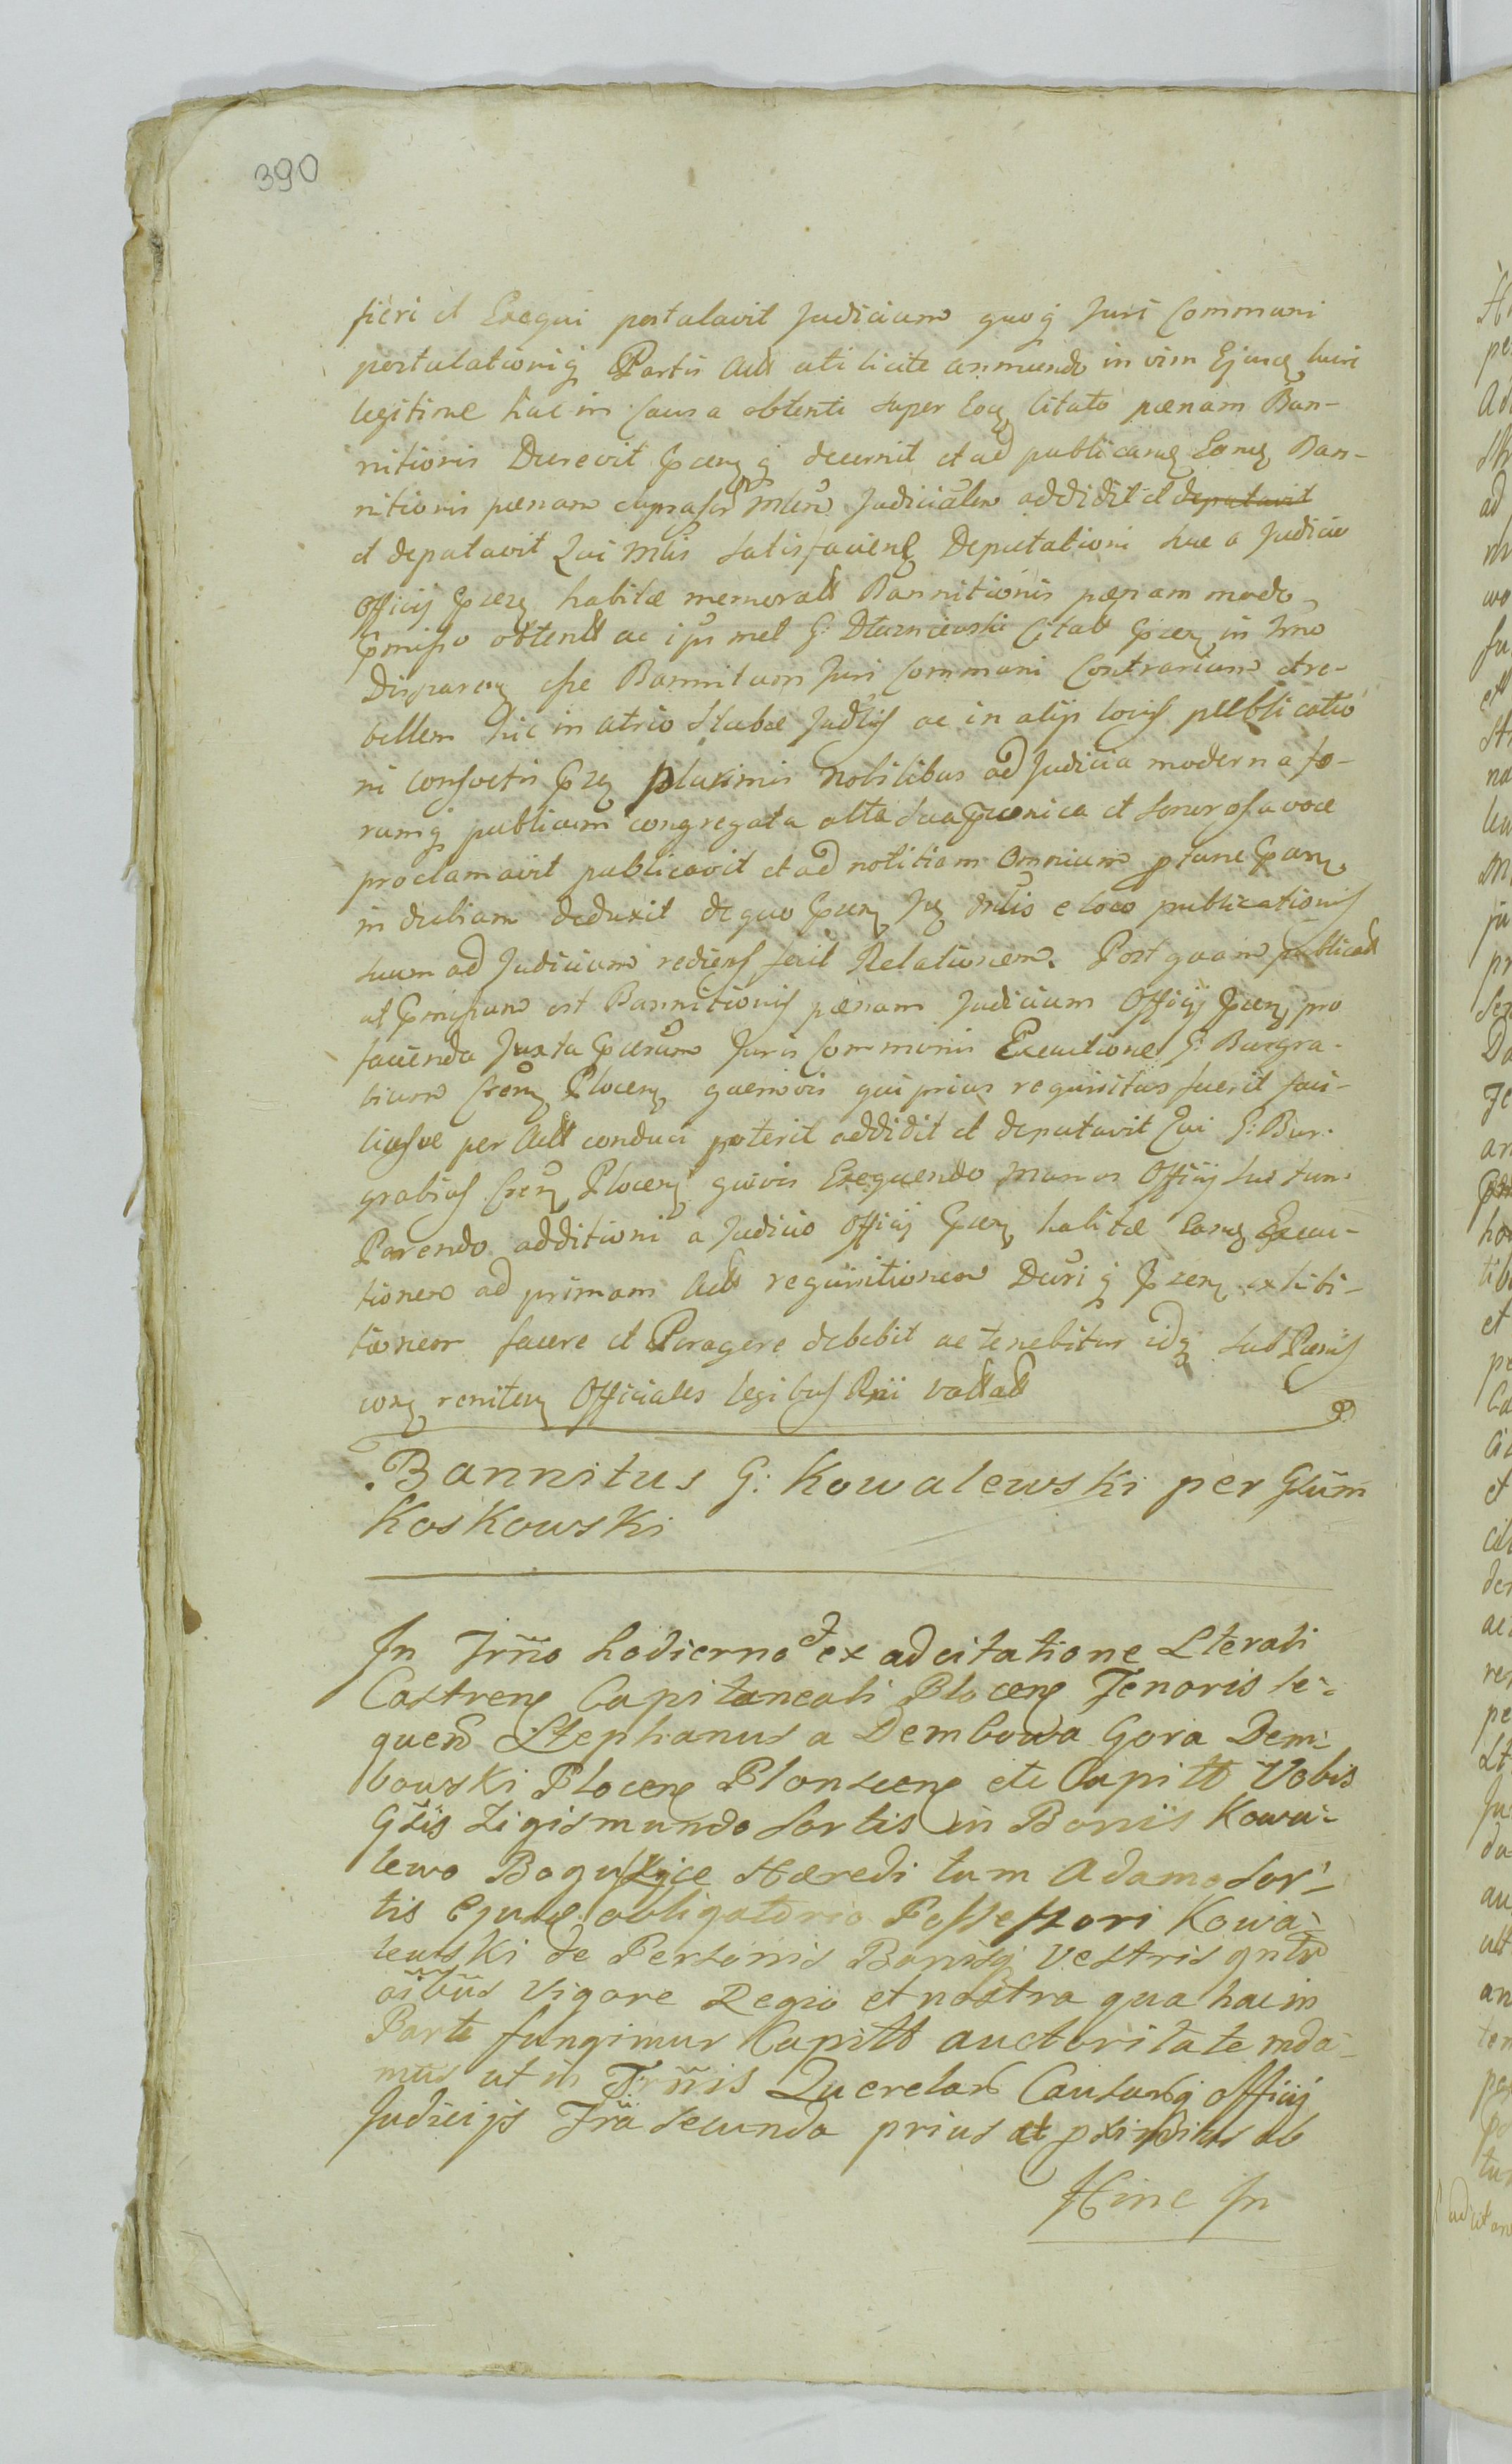 390
fieri et Exequi postulavit Judicium quoq Juri Communi
postulationiq Partis Actt uti licite annuendo in vim Ejusd lucri
legitime hac in causa obtenti super Eod Citato pœnam Ban-
nitionis Decrevit pnq decernit et ad publicand Eand Ban-
nitionis pœnam suprascr Mlem Judicialem addidit et deputavit
et deputavit Qui Mlis satisfaciens Deputationi suæ a Judicio
Officij habitæ memoratt Bannitionis pœnam modo
pmisso obtentt ac ipsmet G: Dłuzniewski Citatt in Trno
Disparen esse Bannitum Juri Communi Contrarium et re-
bellem hic in atrio Stubæ Judlis ac in alijs locis publicatio
ni consvetis plurimis nobilibus ad Judicia moderna fo-
rumq publicum congregata alta et sonorosa voce
proclamavit publicavit et ad notitiam Omnium
indubiam deduxit de quo Mlis e loco publicationis
suum ad Judicium rediens fecit Relationem. Post quam publicatt
ut pmissum est Bannitionis pœnam Judicium Officij pro
facienda Juxta Juris Communis Executione G: Burgra-
bium Plocen quemvis qui prius requisitus fuerit faci-
liusve per Actt conduci poterit addidit et deputavit Qui G: Bur-
grabius Plocen quivis Exequendo Munus Officij sui tum
Parendo additioni a Judicio Officij habitæ Eand Execu-
tionem ad primam Actt requisitionem Decriq exhibi-
tionem facere et Peragere debebit ac tenebitur idq sub Pœnis
con reniten Officiales legibus Rni vallatt
Bannitus G: Kowalewski per Gsum
Koskowski
In Trno hodierno ex adcitatione Lterali
Castren Capitaneali Plocen Tenoris se-
quen Stephanus a Dembowa Gora Dem-
bowski Plocen Plonscen etc Capitt Vobis
Gsis Zigismundo sortis in Bonis Kowa-
lewo Bogusłjce Hæredi tum Adamo sor-
tis Ejusd obligatorio Possessori Kowa-
lewski de Personis Bonisq Vestris gntr
oibus Vigore Regio et nostra qua hac in
Parte fungimur Capitt auctoritate mda-
mus ut in Trnis Querelar Causarq Officij
Judicijs Fria secunda prius et pximius ab
Hinc In